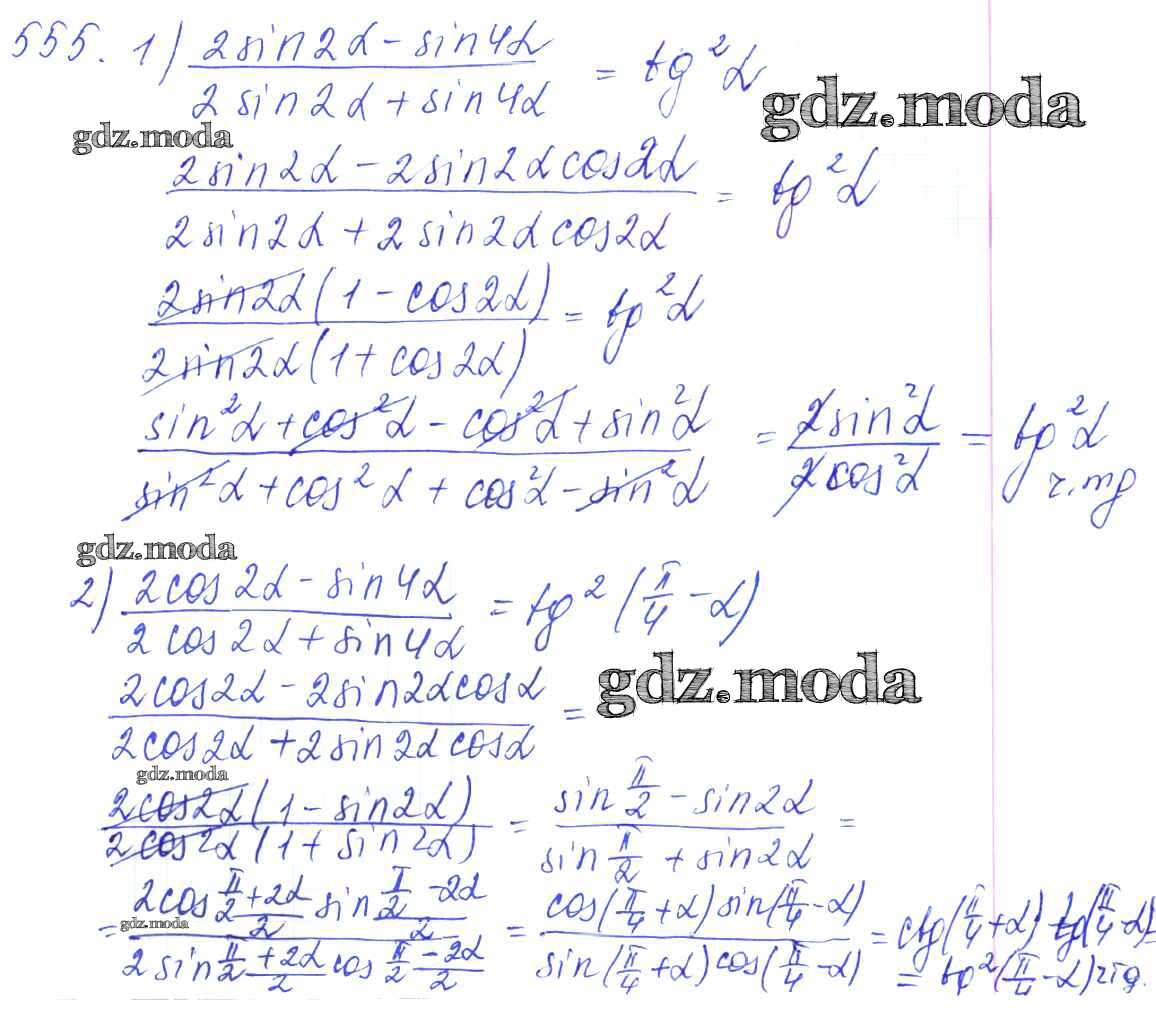 555. 1) (2sin2α - sin4α)/(2sin2α + sin4α) = tg²α
gdz.moda
gdz.moda
(2sin2α - 2sin2αcos2α)/(2sin2α + 2sin2αcos2α) = tg²α
(2sin2α(1 - cos2α))/(2sin2α(1 + cos2α)) = tg²α
(sin²α + cos²α - cos²α + sin²α)/(sin²α + cos²α + cos²α - sin²α) = (2sin²α)/(2cos²α) = tg²α
gdz.moda
2) (2cos2α - sin4α)/(2cos2α + sin4α) = tg²(π/4 - α)
(2cos2α - 2sin2αcosα)/(2cos2α + 2sin2αcosα) =
gdz.moda
gdz.moda
(2cos2α(1 - sin2α))/(2cos2α(1 + sin2α)) = (sin π/2 - sin2α)/(sin π/2 + sin2α) =
= (2cos (π/2 + 2α)/2 sin (π/2 - 2α)/2)/(2sin (π/2 + 2α)/2 cos (π/2 - 2α)/2) = (cos(π/4 + α) sin(π/4 - α))/(sin(π/4 + α) cos(π/4 - α)) = ctg(π/4 + α) tg(π/4 - α) =
gdz.moda
= tg²(π/4 - α)